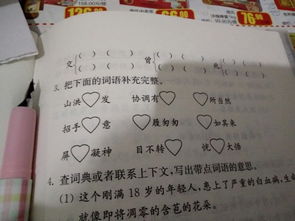 158.00元/
76
交 ( ) ( ) 曾 ( ) ( )
( ) ( ) ( ) ( )
3. 把下面的词语补充完整。
山洪♡发 协调有♡ ♡所当然
招手♡意 ♡履匆匆 ♡如其来
屏♡凝神 目不转♡ 恍♡大悟
4. 查词典或者联系上下文,写出带点词语的意思。
(1) 这个刚满 18 岁的年轻人,患上了严重的白血病,生命
就像即将凋零的含苞的花朵。